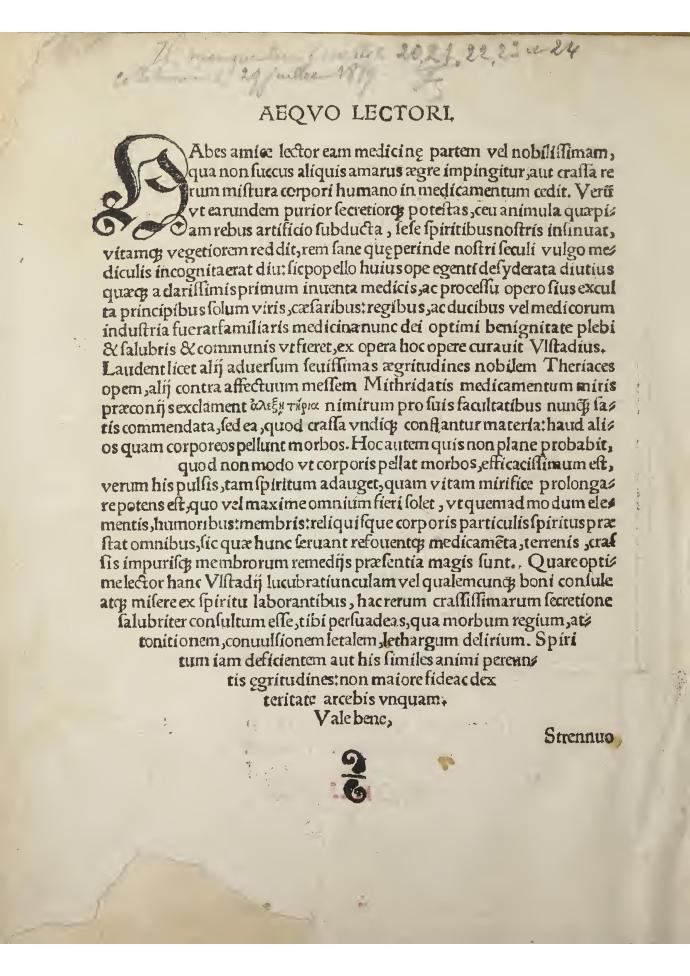 Il manque 20, 21, 22, 23 et 24
29 juillet 1879
AEQVO LECTORI.
HAbes amice lector eam medicinę partem vel nobiliſſimam,
qua non ſuccus aliquis amarus ægre impingitur, aut craſſa re
rum miſtura corpori humano in medicamentum cedit. Verū
vt earundem purior ſecretiorqꝫ poteſtas, ceu animula quæpi⸗
am rebus artificio ſubducta, ſeſe ſpiritibus noſtris inſinuat,
vitamqꝫ vegetiorem reddit, rem ſane quę perinde noſtri ſeculi vulgo me⸗
diculis incognita erat diu: ſic popello huius ope egenti deſyderata diutius
quæqꝫ a clariſſimis primum inuenta medicis, ac proceſſu operoſius excul
ta principibus ſolum viris, cæſaribus: regibus, ac ducibus vel medicorum
induſtria fuerat familiaris medicina: nunc dei optimi benignitate plebi
& ſalubris & communis vt fieret, ex opera hoc opere curauit Vlſtadius.
Laudent licet alij aduerſum ſeuiſſimas ægritudines nobilem Theriaces
opem, alij contra affectuum meſſem Mithridatis medicamentum miris
præconijs exclament ἀλεξητήρια nimirum pro ſuis facultatibus nunqꝫ ſa⸗
tis commendata, ſed ea, quod craſſa vndiqꝫ conſtantur materia: haud ali⸗
os quam corporeos pellunt morbos. Hoc autem quis non plane probabit,
quod non modo vt corporis pellat morbos, efficaciſſimum eſt,
verum his pulſis, tam ſpiritum adauget, quam vitam mirifice prolonga⸗
re potens eſt, quo vel maxime omnium fieri ſolet, vt quemadmodum ele⸗
mentis, humoribus: membris: reliquiſque corporis particulis ſpiritus præ
ſtat omnibus, ſic quæ hunc ſeruant refouentqꝫ medicamēta, terrenis, craſ
ſis impuriſqꝫ membrorum remedijs præſentia magis ſunt.. Quare opti⸗
me lector hanc Vlſtadij lucubratiunculam vel qualemcunqꝫ boni conſule
atqꝫ miſere ex ſpiritu laborantibus, hac rerum craſſiſſimarum ſecretione
ſalubriter conſultum eſſe, tibi perſuadeas, qua morbum regium, at⸗
tonitionem, conuulſionem letalem, lethargum delirium. Spiri
tum iam deficientem aut his ſimiles animi pereun⸗
tis ęgritudines: non maiore fide ac dex
teritate arcebis vnquam.
Vale bene,
Strennuo